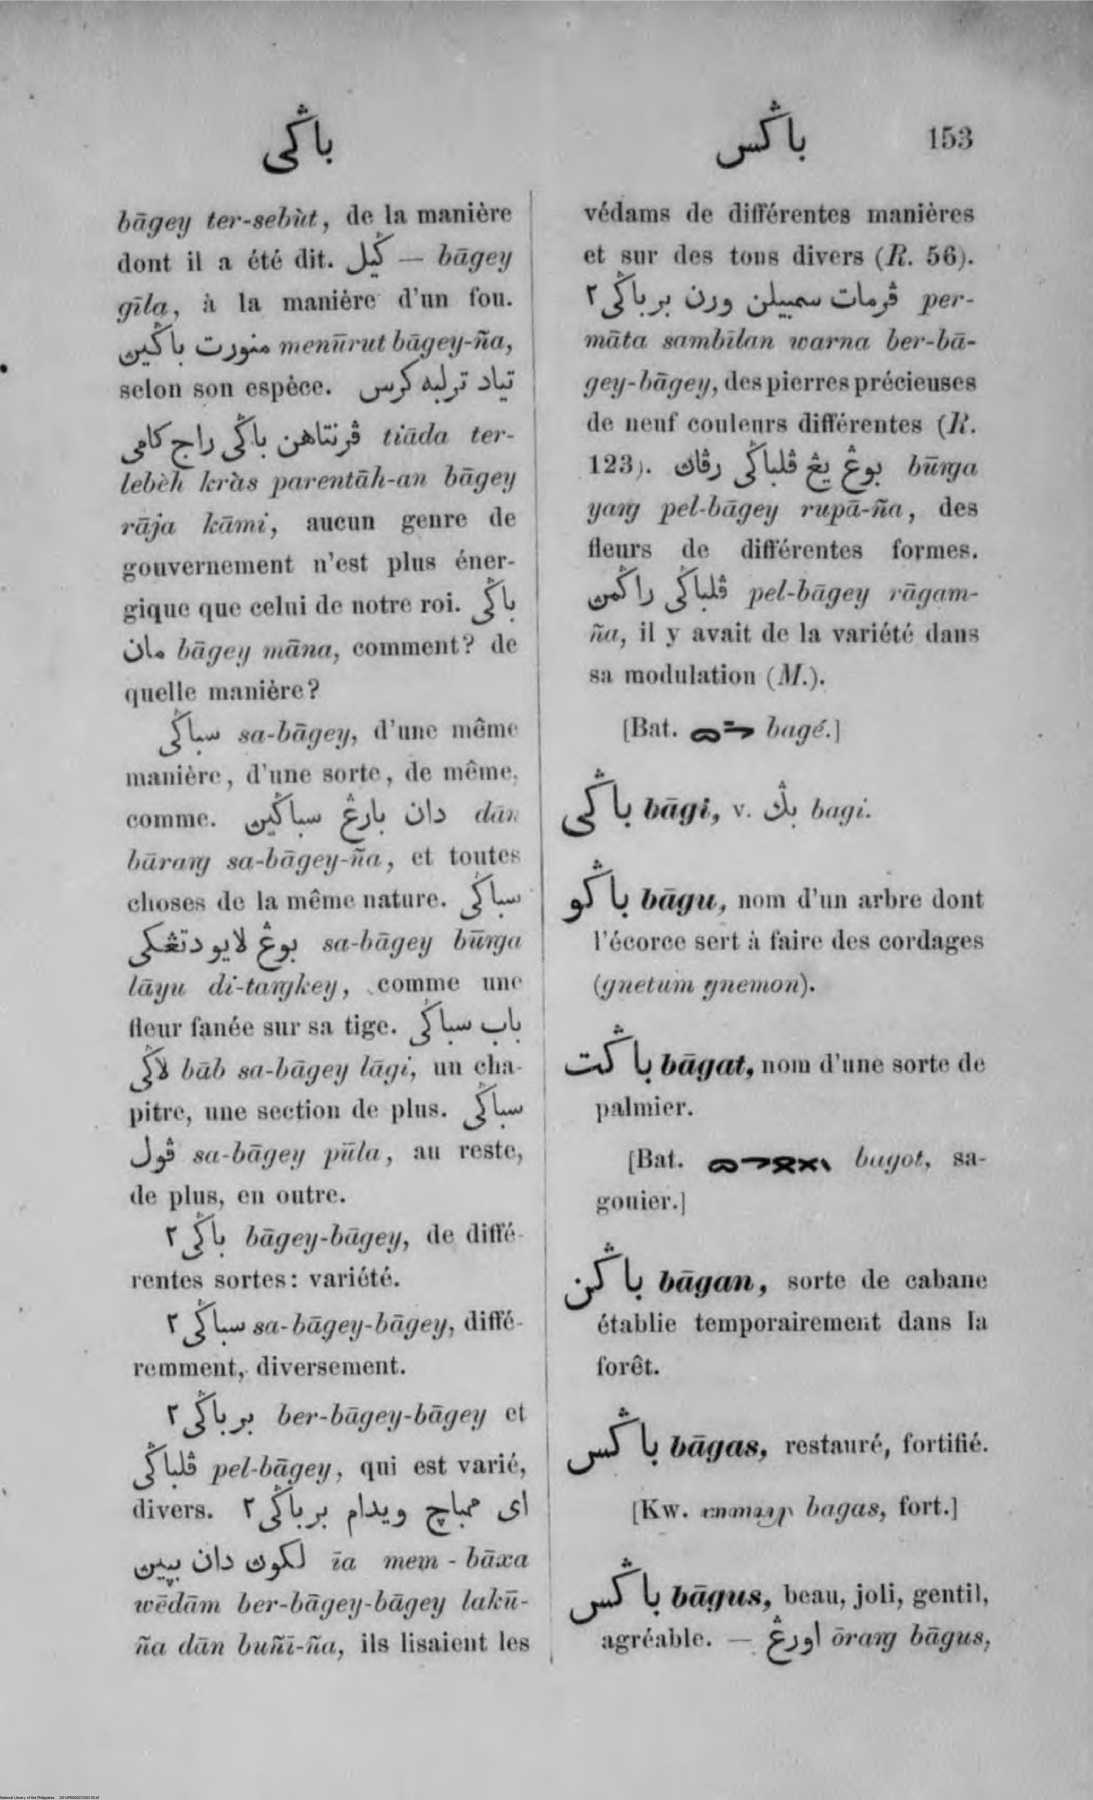 باݢي
باݢس 153
bāgey ter-sebùt, de la manière
dont il a été dit. ݢيل — bāgey
gīla, à la manière d'un fou.
منورت باݢين menūrut bāgey-ña,
selon son espèce. تياد ترلبه كرس
ڤرنتاهن باݢي راج كامي tiāda ter-
lebèh kràs parentāh-an bāgey
rāja kāmi, aucun genre de
gouvernement n'est plus éner-
gique que celui de notre roi. باݢي
مان bāgey māna, comment? de
quelle manière?
سباݢي sa-bāgey, d'une même
manière, d'une sorte, de même,
comme. دان بارڠ سباݢين dān
bāraŋ sa-bāgey-ña, et toutes
choses de la même nature. سباݢي
بوڠ لايو دتڠكي sa-bāgey būŋa
lāyu di-taŋkey, comme une
fleur fanée sur sa tige. باب سباݢي
لاݢي bāb sa-bāgey lāgi, un cha-
pitre, une section de plus. سباݢي
ڤول sa-bāgey pūla, au reste,
de plus, en outre.
باݢي٢ bāgey-bāgey, de diffé-
rentes sortes: variété.
سباݢي٢ sa-bāgey-bāgey, diffé-
remment, diversement.
برباݢي٢ ber-bāgey-bāgey et
ڤلباݢي pel-bāgey, qui est varié,
divers. اي ممباچ ويدام برباݢي٢
لكون دان بڽين īa mem-bāxa
wēdām ber-bāgey-bāgey lakū-
ña dān buñī-ña, ils lisaient les
védams de différentes manières
et sur des tons divers (R. 56).
ڤرمات سمبيلن ورن برباݢي٢ per-
māta sambīlan warna ber-bā-
gey-bāgey, des pierres précieuses
de neuf couleurs différentes (R.
123). بوڠ يڠ ڤلباݢي رڤاڽ būŋa
yaŋ pel-bāgey rupā-ña, des
fleurs de différentes formes.
ڤلباݢي راݢمن pel-bāgey rāgam-
ña, il y avait de la variété dans
sa modulation (M.).
[Bat. bagé.]
باݢي bāgi, v. بݢ bagi.
باݢو bāgu, nom d'un arbre dont
l'écorce sert à faire des cordages
(gnetum gnemon).
باݢت bāgat, nom d'une sorte de
palmier.
[Bat. bagot, sa-
gouier.]
باݢن bāgan, sorte de cabane
établie temporairement dans la
forêt.
باݢس bāgas, restauré, fortifié.
[Kw. bagas, fort.]
باݢس bāgus, beau, joli, gentil,
agréable. — اورڠ ōraŋ bāgus,